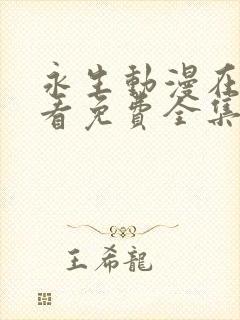 永生動漫在
看免費全集
王希龍